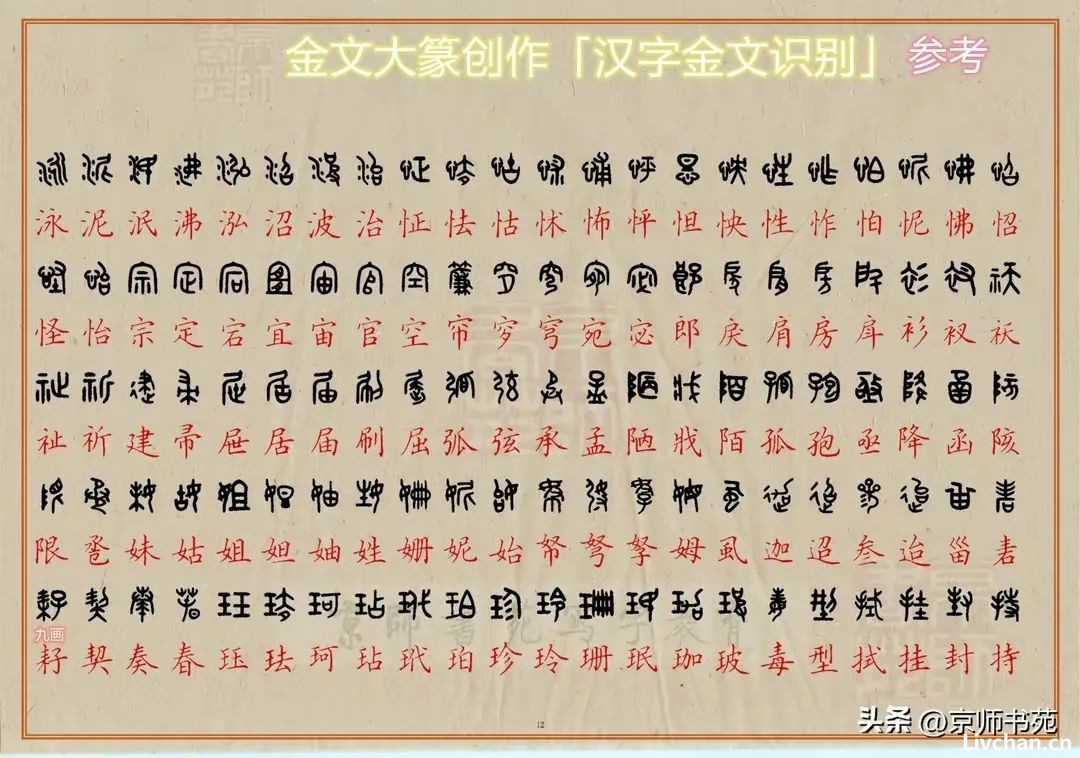 金文大篆创作「汉字金文识别」 参考
泳泥泯沸泓沼波治怔怯怙怵怖怦怛怏性怍怕怩怫怊
怪怡宗定宕宜宙官空帘穸穹宛宓郎戾肩房戽衫衩祆
祉祈建帚屉居届刷屈弧弦承孟陋戕陌孤孢亟降函陔
限卺妹姑姐妲妯姓姗妮始帑弩孥姆虱迦迢叁迨甾砉
九画
耔契奏春珏珐珂玷玳珀珍玲珊珉珈玻毒型拭挂封持
12
头条 @京师书苑
Livchan.cn